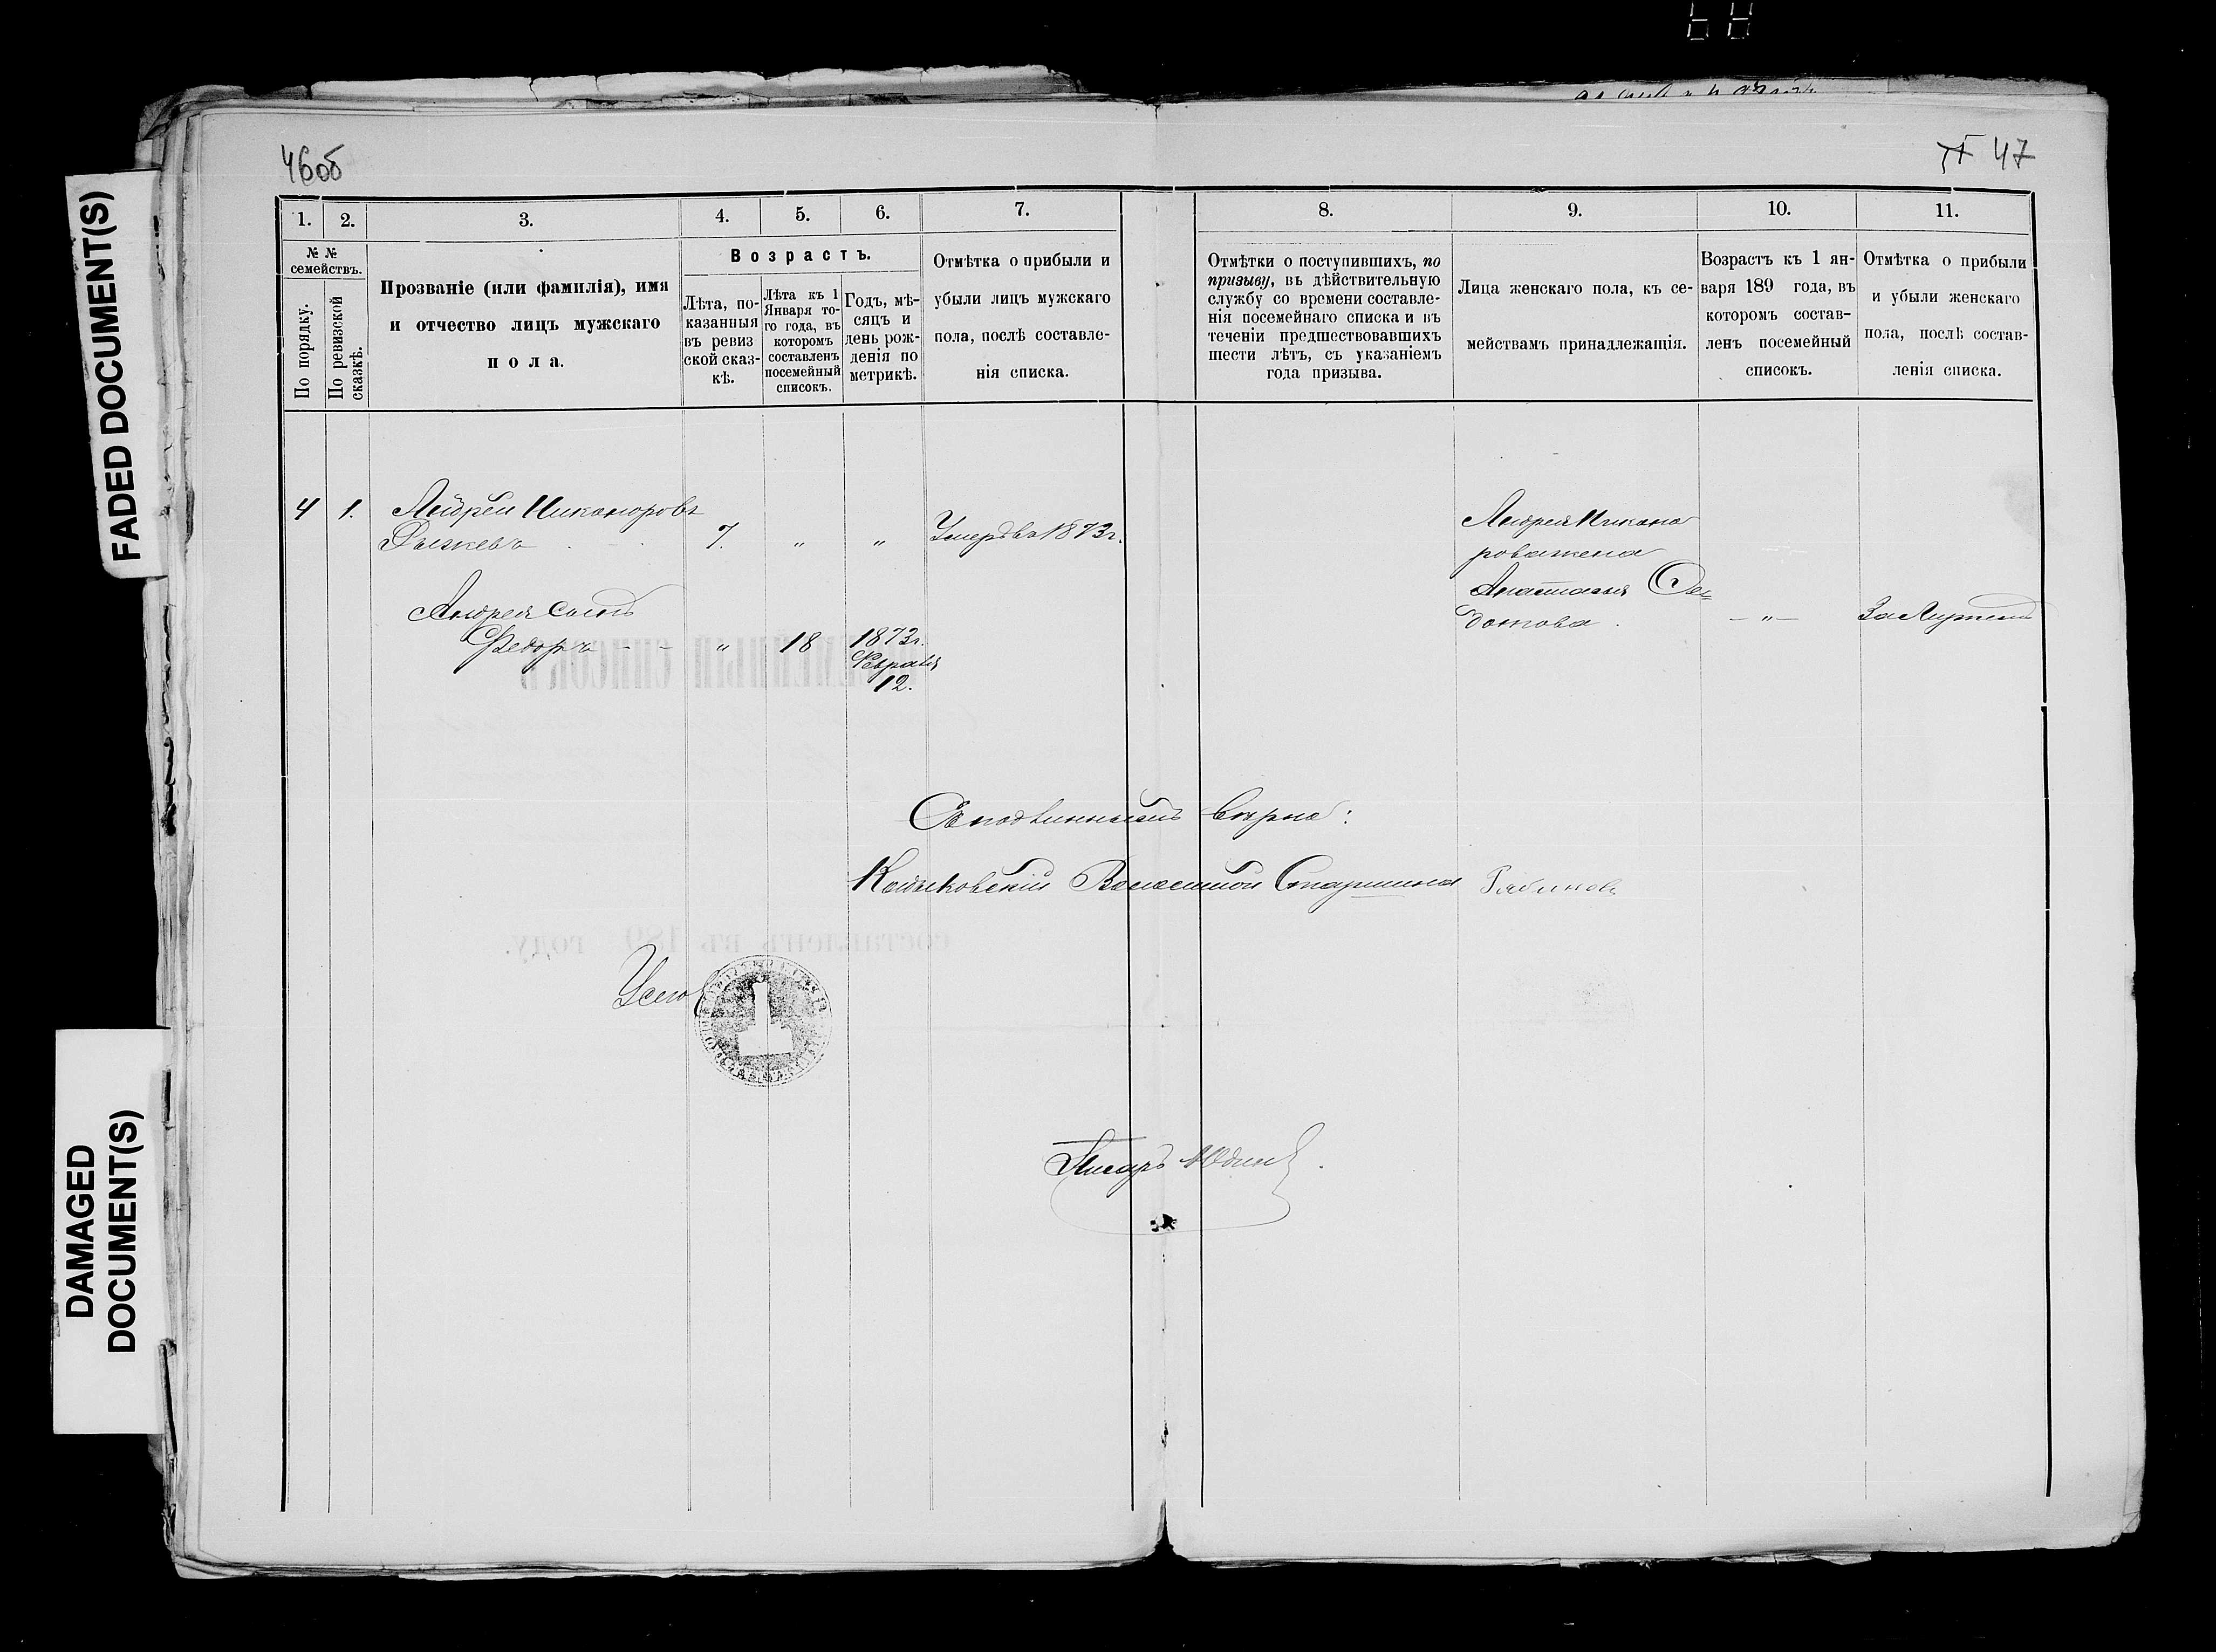 FADED DOCUMENT(S)
DAMAGED
DOCUMENT(S)
46об
47
1.
2.
3.
4.
5.
6.
7.
8.
9.
10.
11.
№ №
семействъ.
По порядку.
По ревизской
сказкѣ.
Прозваніе (или фамилія), имя
и отчество лицъ мужскаго
пола.
Возрастъ.
Лѣта, по-
казанныя
въ ревиз
ской сказ-
кѣ.
Лѣта къ 1
Января то-
го года, въ
которомъ
составленъ
посемейный
списокъ.
Годъ, мѣ-
сяцъ и
день рож-
денія по
метрикѣ.
Отмѣтка о прибыли и
убыли лицъ мужскаго
пола, послѣ составле-
нія списка.
Отмѣтки о поступившихъ, по
призыву, въ дѣйствительную
службу со времени составле-
нія посемейнаго списка и въ
теченіи предшествовавшихъ
шести лѣтъ, съ указаніемъ
года призыва.
Лица женскаго пола, къ се-
мействамъ принадлежащія.
Возрастъ къ 1 ян-
варя 189 года, въ
которомъ состав-
ленъ посемейный
списокъ.
Отмѣтка о прибыли
и убыли женскаго
пола, послѣ состав-
ленія списка.
4 1. Андрей Никаноровъ
7. " " Умеръ въ 1873г.
Андрея сынъ
Федоръ - - " 18 1873г.
Февраля
12.
Андрея Никано
рова жена
Анастасья
дотова - " -
Съ подлиннымъ вѣрно:
Волостной Старшина
Писарь Юдинъ